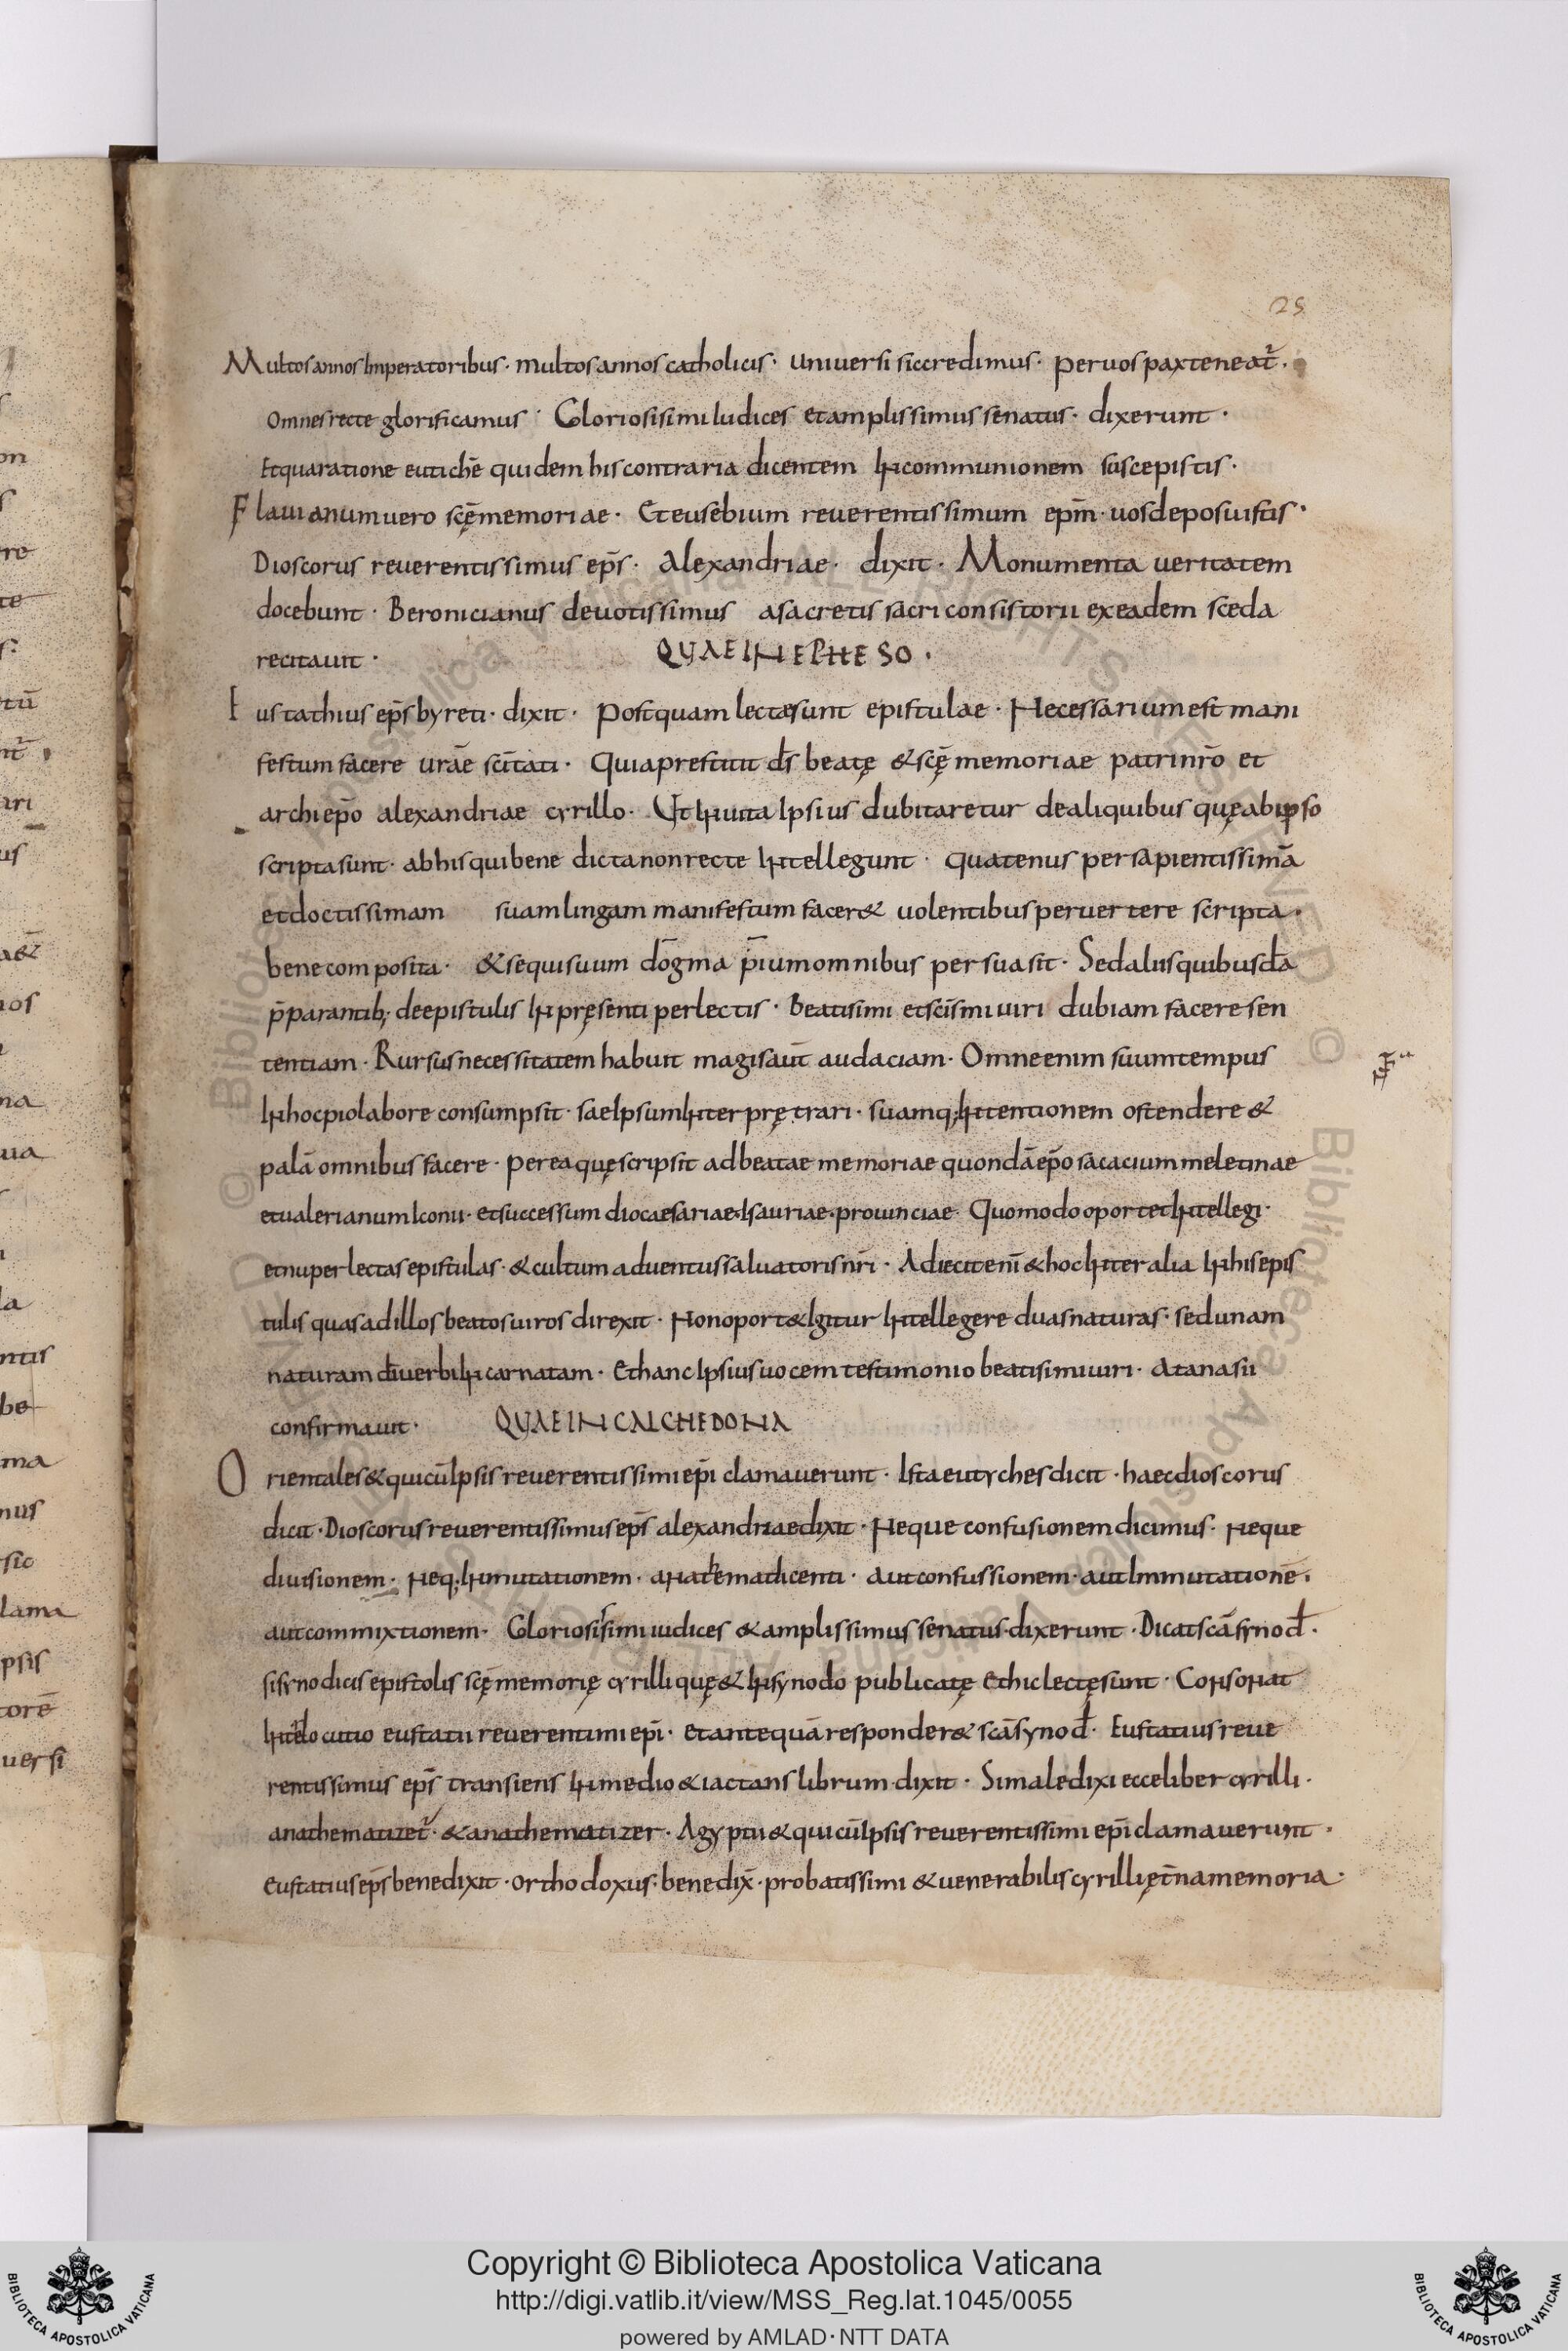 25
Multos annos Imperatoribus· multos annos catholicis· universi sic credimus· per uos pax teneat᷑·
Omnes recte glorificamus· Gloriosisimi Iudices et amplissimus senatus· dixerunt·
Et qua ratione eutichē quidem his contraria dicentem In communionem suscepistis·
Flauianum uero scę̄ memoriae· Et eusebium reuerentissimum ep̄m· uos deposuistis·
Dioscorus reuerentissimus ep̄s· Alexandriae· dixit· Monumenta ueritatem
docebunt· Beronicianus deuotissimus a sacretis sacri consistorii ex eadem sceda
recitauit· QUAE IN EPHESO·
Eustathius ep̄s byreti· dixit· postquam lectae sunt epistulae· Necessarium est mani
festum facere urāe sc̄itati· Quia prestitit d̄s beatę & scę̄ memoriae patri nr̄o et
archiep̄o alexandriae cyrillo· Ut In uita Ipsius dubitaretur de aliquibus quę ab ipso
scripta sunt· ab his qui bene dicta non recte Intellegunt· quatenus per sapientissimā
et doctissimam suam lingam manifestum facer& uolentibus peruertere scripta·
bene composita· & sequi suum dōgma p̄ium omnibus persuasit· Sed aliis quibusdā
p̄parantib; de epistulis In pręsenti perlectis· Beatisimi et sc̄ismi uiri dubiam facere sen
tentiam· Rursus necessitatem habuit magis aut̄ audaciam· Omne enim suum tempus
In hoc pio labore consumpsit· sae Ipsum Interprętrari· suamq; Intentionem ostendere &
palā omnibus facere· per ea quę scripsit ad beatae memoriae quondā ep̄os acacium meletinae
et ualerianum Iconii· et successum diocaesariae· Isauriae· prouinciae· Quomodo oportet Intellegi·
et nuper lectas epistulas· & cultum aduentus saluatoris nr̄i· Adiecit enī & hoc Inter alia In his epis
tulis quas ad illos beatos uiros direxit· Non oport& Igitur Intellegere duas naturas· sed unam
naturam dī uerbi Incarnatam· Et hanc Ipsius uocem testimonio beatisimi uiri· Atanasii
confirmauit· QUAE IN CALCHEDONA
Orientales & qui cū Ipsis reuerentissimi ep̄i clamauerunt· Ista eutyches dicit· haec dioscorus
dicit· Dioscorus reuerentissimus ep̄s alexandriae dixit· Neque confusionem dicimus· neque
diuisionem· Neq; Inmutationem· anathema dicenti· aut confussionem· aut Immutationē·
aut commixtionem· Gloriosissimi iudices & amplissimus senatus· dixerunt· Dicat scā synod·
si synodicis epistolis scę̄ memorię cyrilli quę & In synodo publicatę Et hic lectę sunt· Consonat
Interlocutio eustatii reuerentimi ep̄i· et antequā responder& scā synod· Eustatius reue
rentissimus ep̄s transiens In medio & iactans librum· dixit· Si male dixi ecce liber cyrilli·
anathematizet᷑· & anathematizer· Agyptii & qui cū Ipsis reuerentissimi ep̄i clamauerunt·
Eustatius ep̄s bene dixit· Orthodoxus· bene dix̄· probatissimi & uenerabilis cyrilli ęt̄na memoria·
Copyright © Biblioteca Apostolica Vaticana
http://digi.vatlib.it/view/MSS_Reg.lat.1045/0055
powered by AMLAD·NTT DATA
BIBLIOTECA APOSTOLICA VATICANA
BIBLIOTECA APOSTOLICA VATICANA